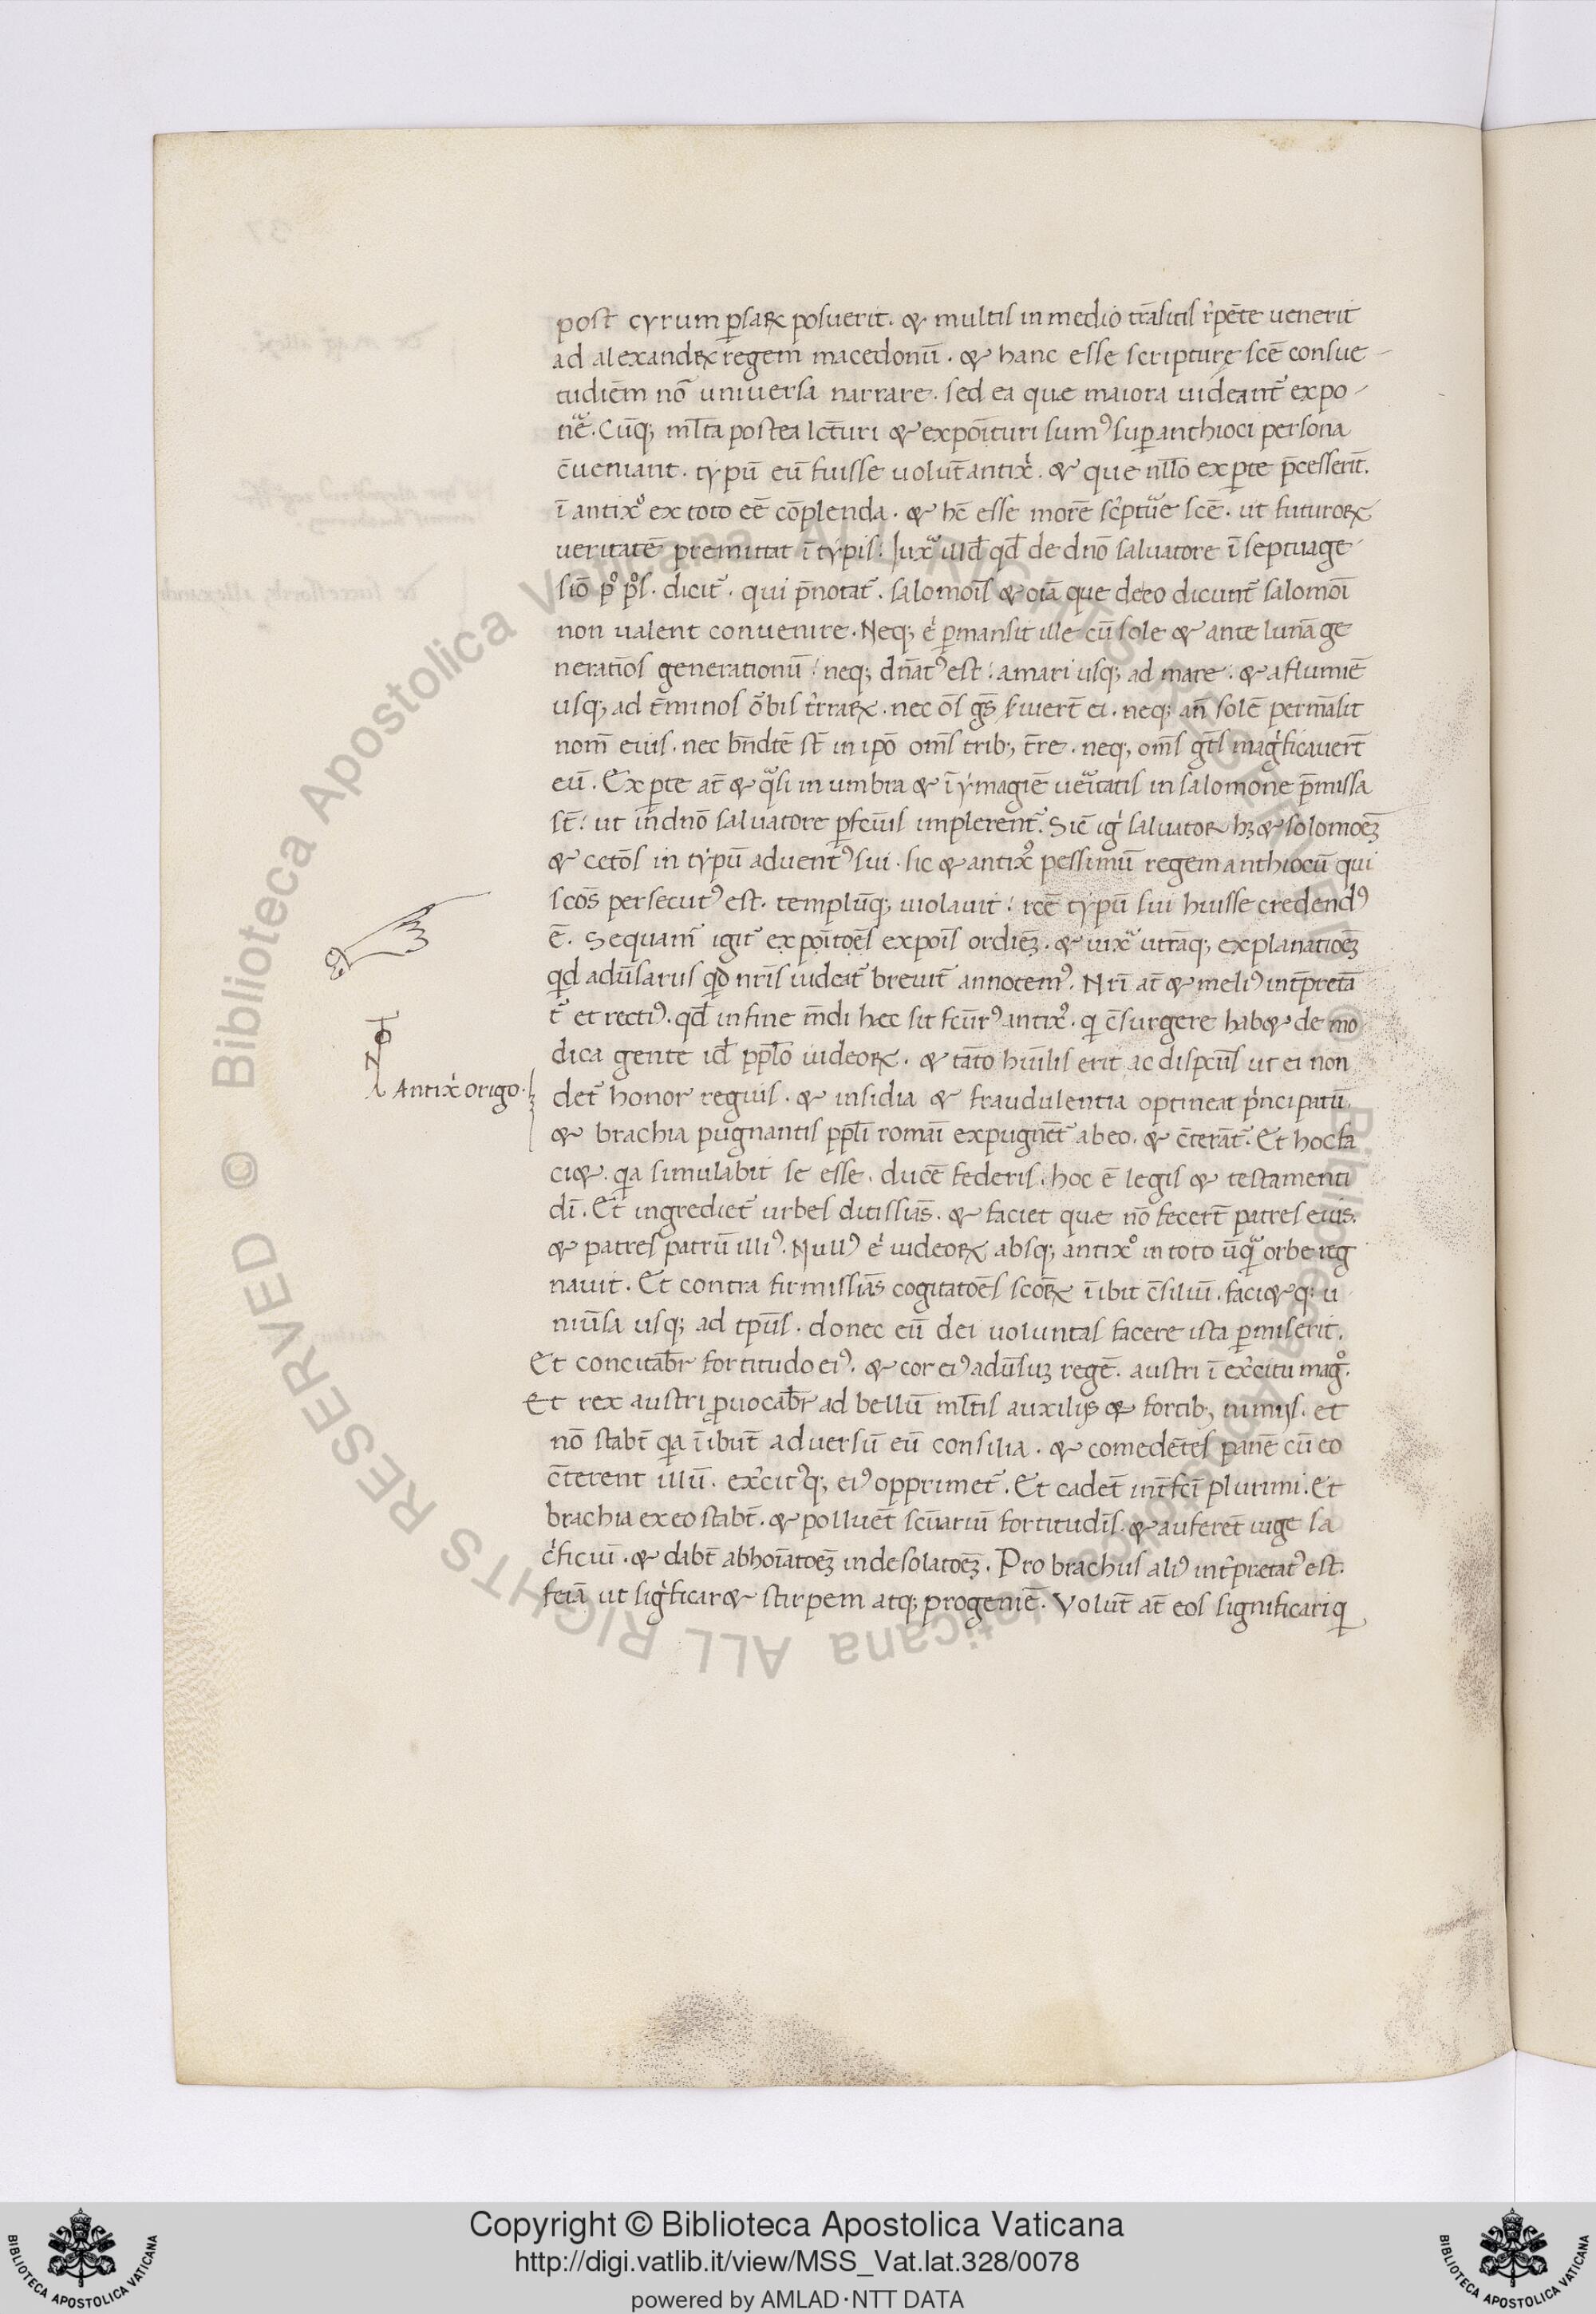 post cyrum ꝑsaꝝ posuerit. & multis in medio trāsitis rͥpēte uenerit
ad alexandꝝ regem macedonū. & hanc esse scripture scē consue-
tudiēm nō universa narrare. sed ea quæ maiora uideant᷑ expo-
nͣe. Cūq; ml̄ta postea lct̄uri & expoīturi sumꝰ suꝑ anthioci persona
c̄ueniant. typū eū fuisse uolūt antixͥ. & que nll̄o ex ꝑte p̄cesserīt.
ī antixͦ ex toto eē cōplenda. & hc̄ esse morē scͥptuͣe scē. ut futuroꝝ
ueritatē premittat ī typis. Iuxͣ illd̄ qd̄ de dnō saluatore ī septuage-
siō pͦ pͦs. dicit᷑. qui p̄notat᷑. salomoīs & oīā que de eo dicunt᷑ salomoī
non ualent convenire. Neq; eͥ ꝑmansit ille cū sole & ante lunā ge
neratiōs generationū: neq; dn̄atꝰ est: a mari usq; ad mare. & a flumiē
usq; ad t̄minos ōbis tͥraꝝ. nec ōs gs̄ suiert̄ ei. neq; an̄ solē perm̄asit
nom̄ eius. nec bn̄dtē st̄ in ipō om̄s trib; t̄re. neq; om̄s gt̄s magͥficauert̄
eū. Ex ꝑte at̄ & qͣsi in umbra & ī ymagiē ueͣitatis in salomone p̄missa
st̄: ut in dnō saluatore ꝑfeīus implerent᷑. Sic̄ igͥ saluator hꝫ & solomoēꝫ
& cetōs in typū adventꝰ sui. sic & antixͦ pessimū regem anthiocū qui
scōs persecutꝰ est. templūq; uiolauit: rcē typū sui huisse credendꝰ
ē. Sequam᷑ igit᷑ expoītoēs expoīs ordiēꝫ. & iuxͣ utrāq; explanatioēꝫ
qͥd adūsariis qͥd nrīs uideat᷑ breuit᷑ annotemꝰ. Nrī at̄ & meliꝰ int̄pretā
t᷑ et rectiꝰ. qd̄ in fine m̄di hæc sit fcūrꝰ antixͦ. qͥ c̄surgere hab& de mo
dica gente id̄ ppl̄o iudeoꝝ. & tāto huīlis erit ac dispcūs ut ei non
Antixͥ origo.
det᷑ honor regius. & insidia & fraudulentia optineat pͥncipatū
& brachia pugnantis ppl̄i romāi expugnēt᷑ ab eo. & c̄terāt᷑. Et hoc fa
ci&. qͥa simulabit se esse. ducē federis. hoc ē legis & testamenti
dī. Et ingrediet᷑ urbes ditissiās. & faciet quæ nō fecerт̄ patres eius.
& patres patrū illiꝰ. Nullꝰ eͥ iudeoꝝ absq; antixͦ in toto ūqͣ orbe reg
nauit. Et contra firmissiās cogitatoēs scōꝝ īibit c̄siliū. faci& q; u
niūsa usq; ad tpūs. donec eū dei uoluntas facere ista ꝑmiserit.
Et concitab̄r fortitudo eiꝰ. & cor eiꝰ adūsuꝫ regē. austri ī exͥcitu magͦ.
Et rex austri ꝓuocab̄r ad bellū ml̄tis auxilijs & fortib; nimijs. et
nō stabт̄ qͥa īibūt adversū eū consilia. & comedētes panē cū eo
c̄terent illū. exͥcitꝰq; eiꝰ opprimet᷑. Et cadet̄ int̄fcī plurimi. Et
brachia ex eo stabт̄. & polluēt scūariū fortitudīs. & auferēt iuge sa
cͥficiū. & dabт̄ abhoīatoēꝫ in desolatoēꝫ. Pro brachiis aliꝰ int͛pretatꝰ est.
seīā ut sigͥficar& stirpem atq; progeniē. Volūt at̄ eos significari qͥ
Copyright © Biblioteca Apostolica Vaticana
http://digi.vatlib.it/view/MSS_Vat.lat.328/0078
powered by AMLAD·NTT DATA